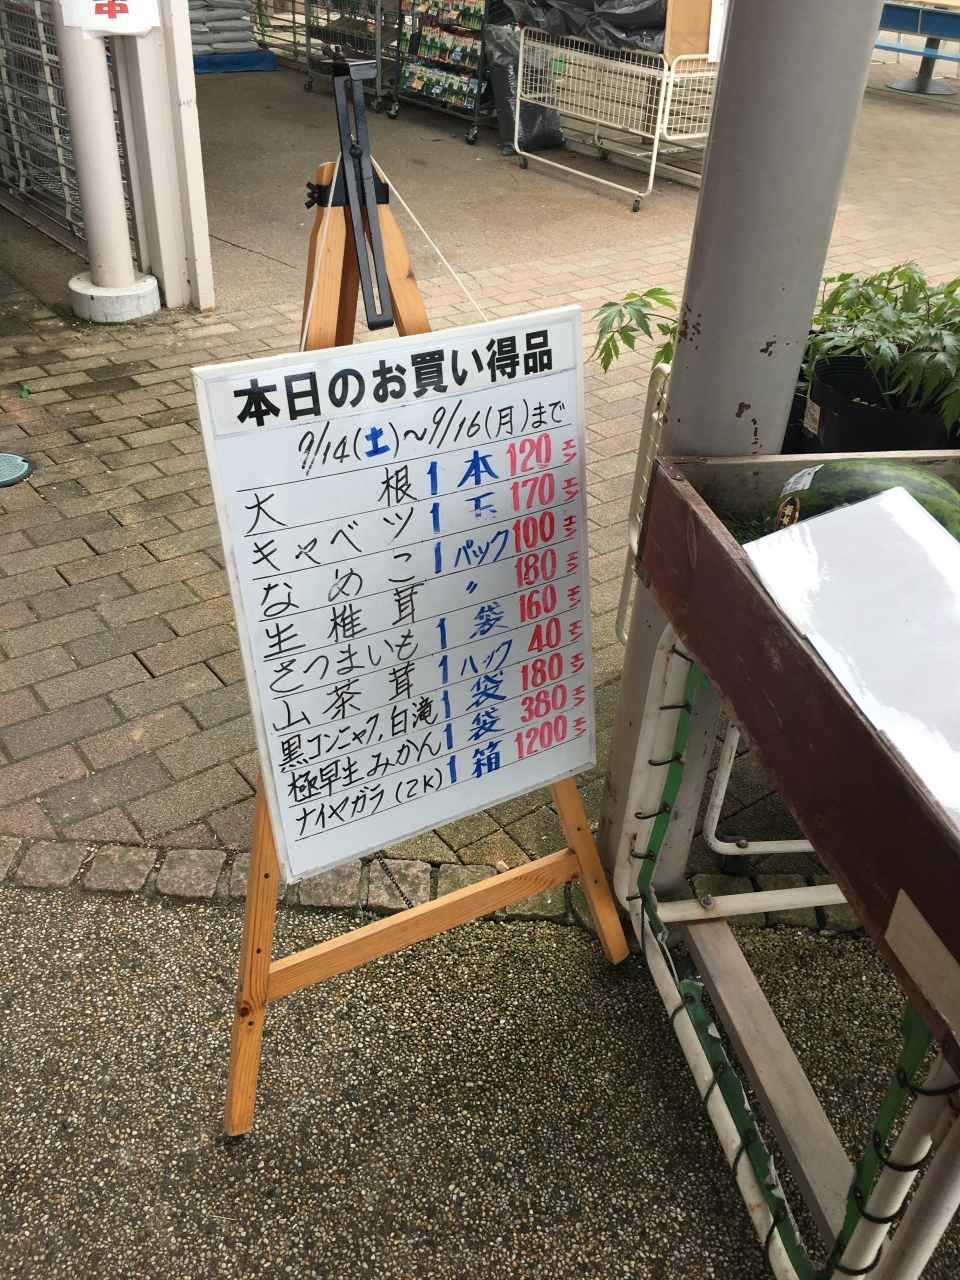 本日のお買い得品
9/14(土)〜9/16(月)まで
大根 1本 120エン
キャベツ 1玉 170エン
なめこ 1パック 100エン
生椎茸 〃 180エン
さつまいも 1袋 160エン
山茶茸 1ハック 40エン
黒コンニャク,白滝 1袋 180エン
極早生みかん 1袋 380エン
ナイヤガラ(2K) 1箱 1200エン